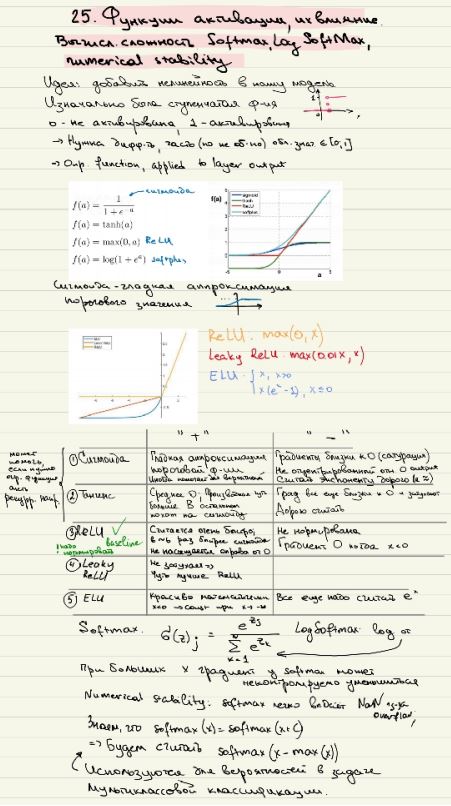 25. Функции активации, их влияние.
Вычисл. сложность Softmax, Log SoftMax,
numerical stability
Идея: добавить нелинейность в нашу модель
Изначально была ступенчатая ф-ия
0 - не активирована, 1 - активирована
→ Нужна дифф-ть, часто (но не об-но) обл. знач ∈ [0,1]
→ Опр. function, applied to layer output
f(a) = 1 / (1 + e^-a) сигмоида
f(a) = tanh(a)
f(a) = max(0, a) ReLU
f(a) = log(1 + e^a) softplus
f(a)
sigmoid
tanh
ReLU
softplus
a
Сигмоида - гладкая аппроксимация
порогового значения
ReLU: max(0, x)
Leaky ReLU: max(0.01x, x)
ELU: { x, x>0
α(e^x - 1), x≤0
"+" "-"
может помочь, если нужно огр. функцию
① Сигмоида
Гладкая аппроксимация
пороговой ф-ии
Градиенты близки к 0 (сатурация)
Не отцентрированный отн 0 output
Считать экспоненту дорого
② Тангенс
Среднее 0,
больше. В остальном
похож на сигмоиду
Град все еще близки к 0
Дорого считать
③ ReLU baseline
Считается очень быстро,
в ~6 раз быстрее сигмоиды
Не насыщается справа от 0
Не нормирована
Градиент 0 когда x<0
④ Leaky ReLU
Чуть лучше ReLU
⑤ ELU
Красиво математически
Все еще надо считать e^x
Softmax: σ(z)_j = e^z_j / Σ_{k=1} e^z_k LogSoftmax: log от
При больших x градиент у softmax может
неконтролируемо уменьшаться
Numerical stability: softmax легко выдаст NaN из-за
overflow,
Знаем, что softmax(x) = softmax(x+C)
=> Будем считать softmax(x - max(x))
Используются для вероятностей в задаче
мультиклассовой классификации.